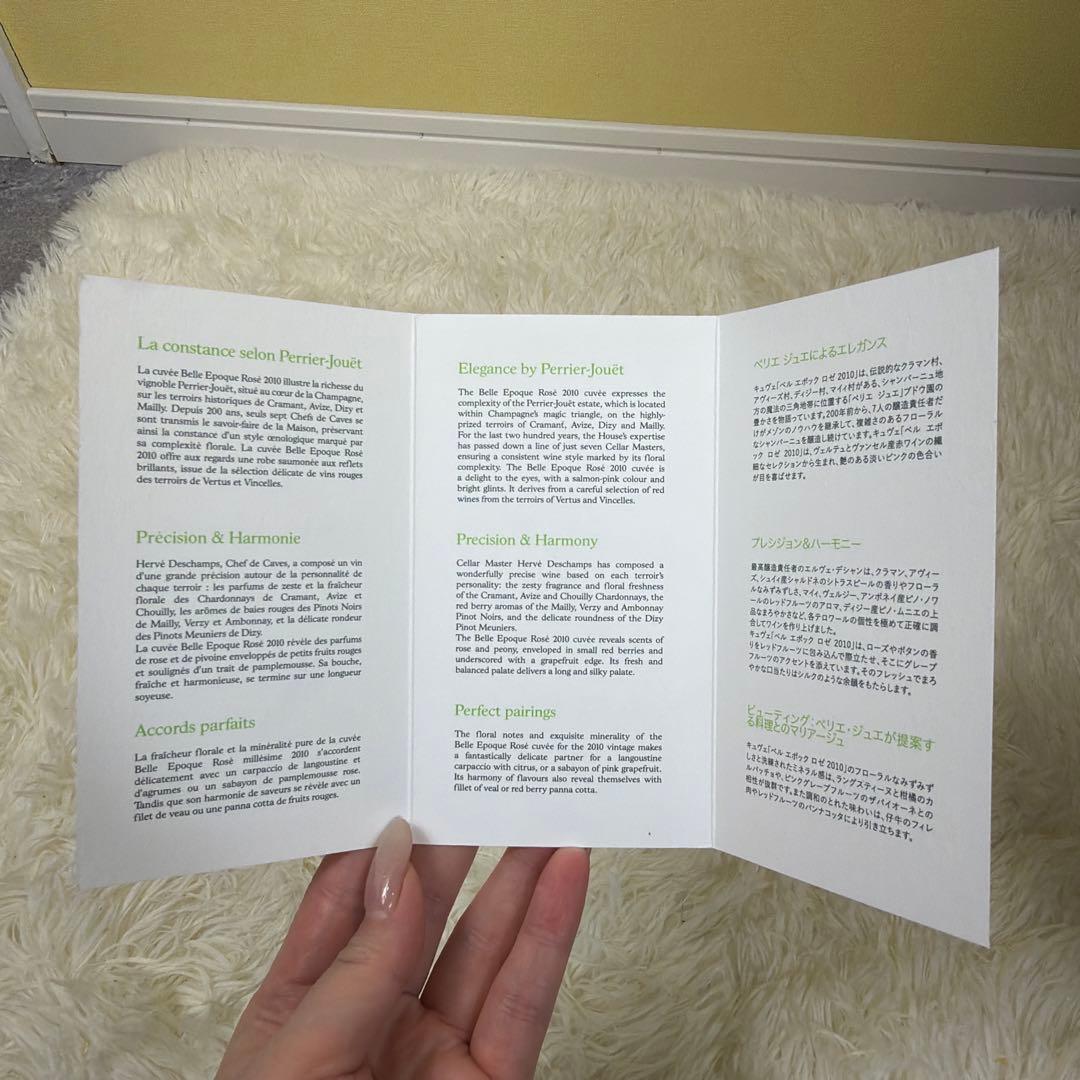 La constance selon Perrier-Jouët
La cuvée Belle Epoque Rosé 2010 illustre la richesse du
vignoble Perrier-Jouët, situé au cœur de la Champagne,
sur les terroirs historiques de Cramant, Avize, Dizy et
Mailly. Depuis 200 ans, seuls sept Chefs de Caves se
sont transmis le savoir-faire de la Maison, préservant
ainsi la constance d'un style œnologique marqué par
sa complexité florale. La cuvée Belle Epoque Rosé
2010 offre aux regards une robe saumonée aux reflets
brillants, issue de la sélection délicate de vins rouges
des terroirs de Vertus et Vincelles.
Précision & Harmonie
Hervé Deschamps, Chef de Caves, a composé un vin
d'une grande précision autour de la personnalité de
chaque terroir : les parfums de zeste et la fraîcheur
florale des Chardonnays de Cramant, Avize et
Chouilly, les arômes de baies rouges des Pinots Noirs
de Mailly, Verzy et Ambonnay, et la délicate rondeur
des Pinots Meuniers de Dizy.
La cuvée Belle Epoque Rosé 2010 révèle des parfums
de rose et de pivoine enveloppés de petits fruits rouges
et soulignés d'un trait de pamplemousse. Sa bouche,
fraîche et harmonieuse, se termine sur une longueur
soyeuse.
Accords parfaits
La fraîcheur florale et la minéralité pure de la cuvée
Belle Epoque Rosé millésime 2010 s'accordent
délicatement avec un carpaccio de langoustine et
d'agrumes ou un sabayon de pamplemousse rose.
Tandis que son harmonie de saveurs se révèle avec un
filet de veau ou une panna cotta de fruits rouges.
Elegance by Perrier-Jouët
The Belle Epoque Rosé 2010 cuvée expresses the
complexity of the Perrier-Jouët estate, which is located
within Champagne's magic triangle, on the highly-
prized terroirs of Cramant, Avize, Dizy and Mailly.
For the last two hundred years, the House's expertise
has passed down a line of just seven Cellar Masters,
ensuring a consistent wine style marked by its floral
complexity. The Belle Epoque Rosé 2010 cuvée is
a delight to the eyes, with a salmon-pink colour and
bright glints. It derives from a careful selection of red
wines from the terroirs of Vertus and Vincelles.
Precision & Harmony
Cellar Master Hervé Deschamps has composed a
wonderfully precise wine based on each terroir's
personality: the zesty fragrance and floral freshness
of the Cramant, Avize and Chouilly Chardonnays, the
red berry aromas of the Mailly, Verzy and Ambonnay
Pinot Noirs, and the delicate roundness of the Dizy
Pinot Meuniers.
The Belle Epoque Rosé 2010 cuvée reveals scents of
rose and peony, enveloped in small red berries and
underscored with a grapefruit edge. Its fresh and
balanced palate delivers a long and silky palate.
Perfect pairings
The floral notes and exquisite minerality of the
Belle Epoque Rosé cuvée for the 2010 vintage makes
a fantastically delicate partner for a langoustine
carpaccio with citrus, or a sabayon of pink grapefruit.
Its harmony of flavours also reveal themselves with
fillet of veal or red berry panna cotta.
ペリエ ジュエによるエレガンス
キュヴェ「ベル エポック ロゼ 2010」は、伝説的なクラマン村、
アヴィーズ村、ディジー村、マイィ村がある、シャンパーニュ地
方の魔法の三角地帯に位置する「ペリエ ジュエ」ブドウ園の
豊かさを物語っています。200年前から、7人の醸造責任者だ
けがメゾンのノウハウを継承して、複雑さのあるフローラル
なシャンパーニュを醸造し続けています。キュヴェ「ベル エポ
ック ロゼ 2010」は、ヴェルテュとヴァンセル産赤ワインの繊
細なセレクションから生まれ、艶のある淡いピンクの色合い
が目を喜ばせます。
プレシジョン&ハーモニー
最高醸造責任者のエルヴェ・デシャンは、クラマン、アヴィー
ズ、シュイィ産シャルドネのシトラスピールの香りやフローラ
ルなみずみずしさ、マイィ、ヴェルジー、アンボネイ産ピノ・ノワ
ールのレッドフルーツのアロマ、ディジー産ピノ・ムニエの上
品なまろやかさなど、各テロワールの個性を極めて正確に調
合してワインを作り上げました。
キュヴェ「ベル エポック ロゼ 2010」は、ローズやボタンの香
りをレッドフルーツに包み込んで際立たせ、そこにグレープ
フルーツのアクセントを添えています。そのフレッシュでまろ
やかな口当たりはシルクのような余韻をもたらします。
ビューティング:ペリエ・ジュエが提案す
る料理とのマリアージュ
キュヴェ「ベル エポック ロゼ 2010」のフローラルなみずみず
しさと洗練されたミネラル感は、ラングスティーヌと柑橘のカ
ルパッチョや、ピンクグレープフルーツのザバイオーネとの
相性が抜群です。また調和のとれた味わいは、仔牛のフィレ
肉やレッドフルーツのパンナコッタにより引き立ちます。